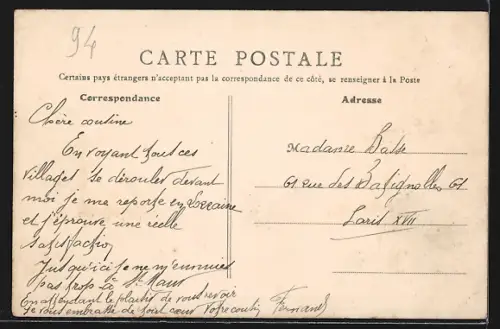 94
CARTE POSTALE
Certains pays étrangers n'acceptant pas la correspondance de ce côté, se renseigner à la Poste
Correspondance
Chère cousine
En voyant tout ces
villages se dérouler devant
moi je me reporte en Lorraine
et j'éprouve une réelle
satisfaction
Jusqu'ici je ne m'ennuies
pas trop à St Maur
En attendant le plaisir de vous revoir
je vous embrasse de tout cœur Votre cousin Fernand
Adresse
Madame
61 rue des Batignolles 61
Paris XVII